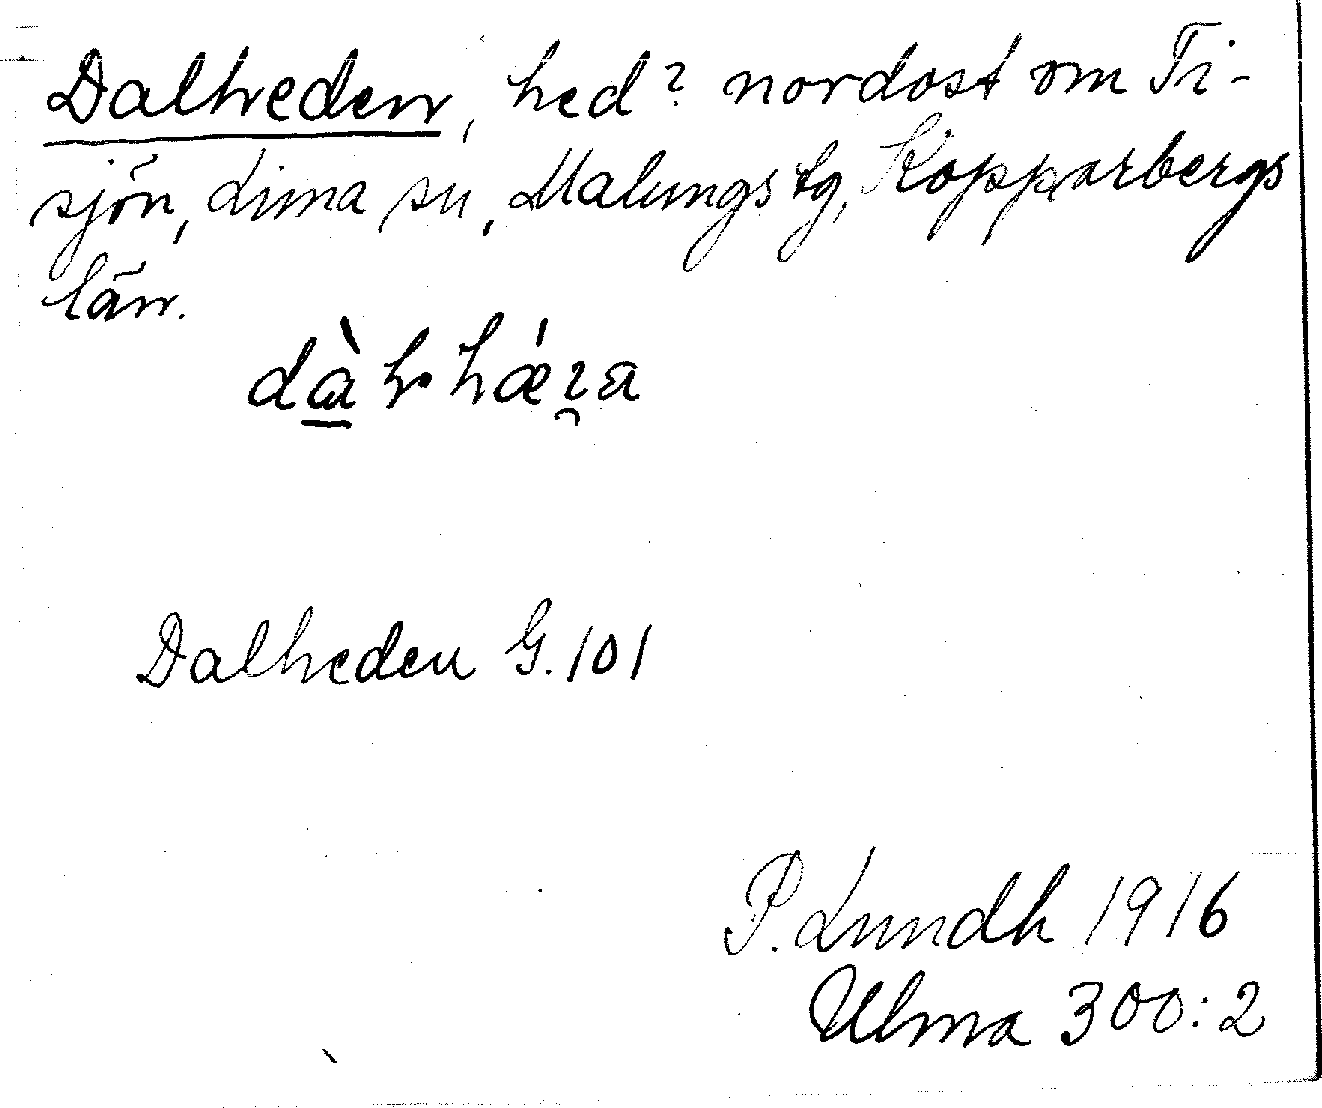 Dalheden, hed? nordost om Ti-
sjön, Lima sn, Malungs tg, Kopparbergs
län.
Dalheden G. 101
P. Lundh 1916
Ulma 300:2